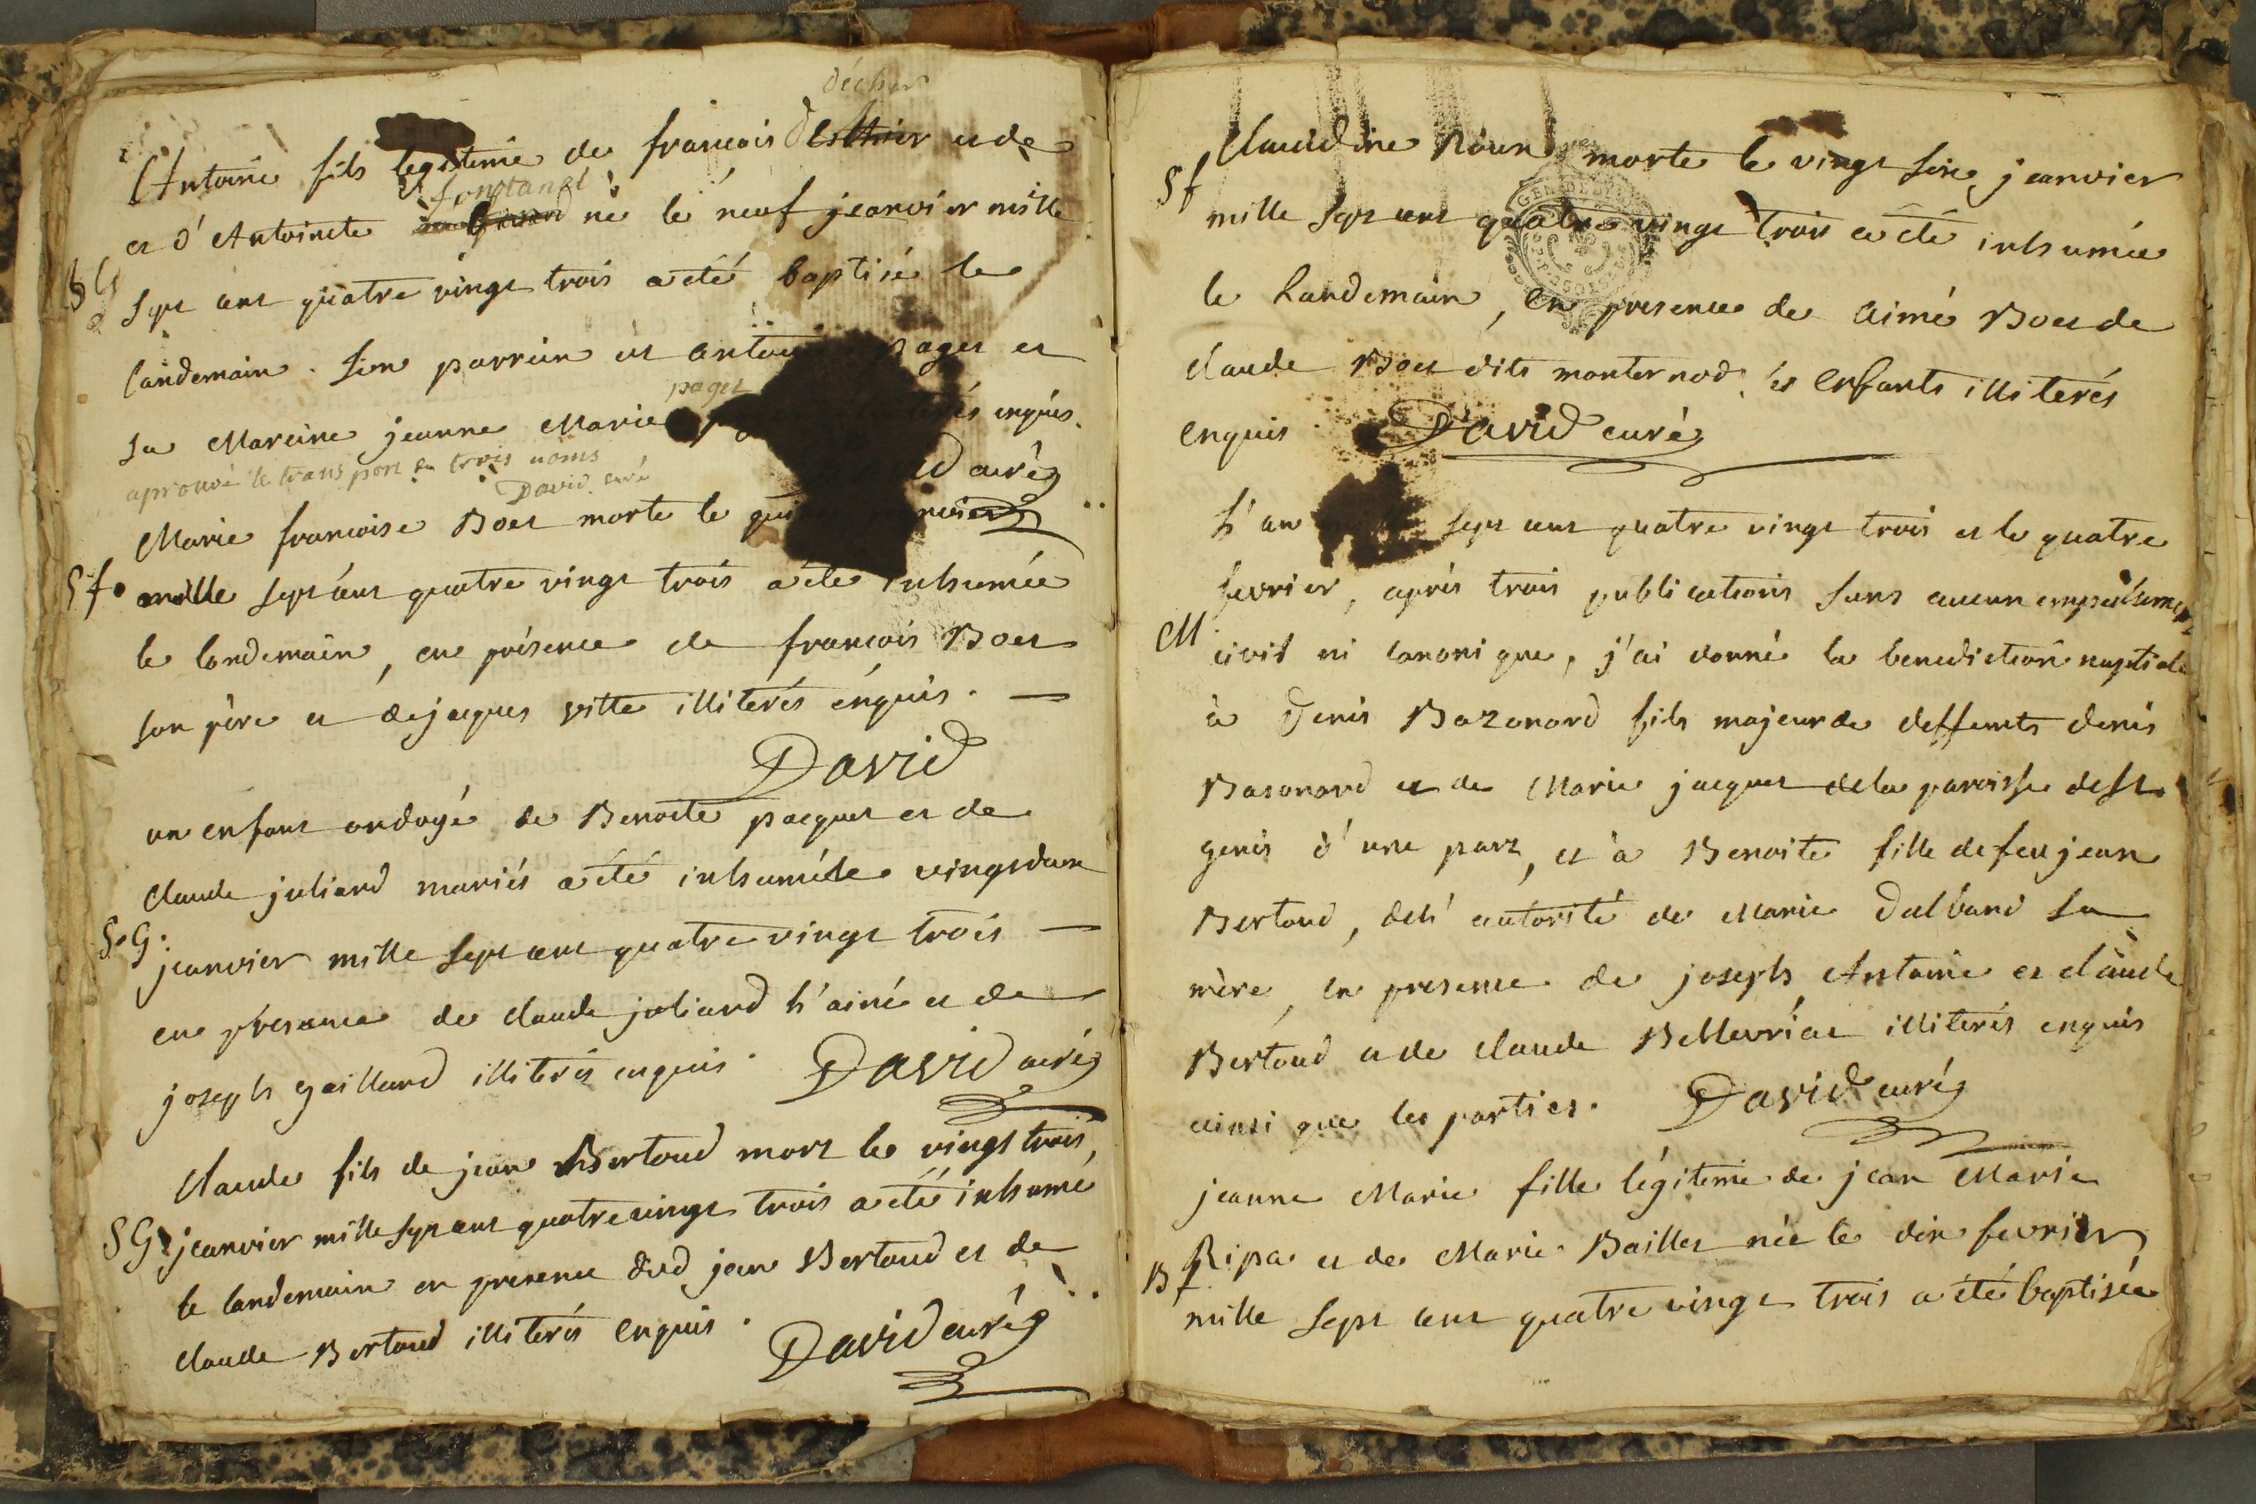 décher
Antoine fils legitime de francois et de
fontanel
et d'Antoinete né le neuf jeanvier mille
BG sept cent quatre vingt trois a été baptisé le
landemain. son parrein est antoine pages et
pages
sa Mareine jeanne Marie enquis.
aprouvé le transport du trois noms
David curé
David curé
Marie francoise Boet morte le
Sf mille sept cent quatre vingt trois a été inhumée
le landemain, en présence de francois Boet
son père et de jacques vitte illiterés enquis.
David
un enfant ondoyé de Benoite pacques et de
claude juliard mariés a été inhumé le vingt d'un
S.G. jeanvier mille sept cent quatre vingt trois
en presance de claude juliard l'ainé et de
joseph gaillard illiterés enquis. David curé
claude fils de jean Bertoud mort le vingt trois
SG jeanvier mille sept cent quatre vingt trois a été inhumé
le landemain en presence dud jean Bertoud et de
claude Bertoud illiterés enquis.
David curé
Sf Claudine morte le vingt six jeanvier
mille sept cent quatre vingt trois a été inhumée
le Landemain, en presence de aimé Boet de
claude Boet dits monternod ses enfants illiterés
enquis David curé
L'an sept cent quatre vingt trois et le quatre
fevrier, aprés trois publications sans aucun empechement
M civil ni canonique, j'ai donné la benediction nuptiale
à Denis Bazonard fils majeur de deffunts denis
Basonard et de Marie jacquet de la paroisse de St
genis d'une part, et à Benoite fille de feu jean
Bertoud, de l'autorité de Marie Dalbard sa
mère, en presence de joseph Antoine et claude
Bertoud et de claude illiterés enquis
ainsi que les parties. David curé
jeanne Marie fille légitime de jean Marie
Bf Ripa et de Marie Baillet née le dix fevrier
mille sept cent quatre vingt trois a été baptisée